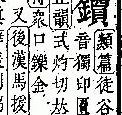 鑟
類篇徒谷
音獨印
韻式灼切𠀤
衆口鑠金
又後漢馬援